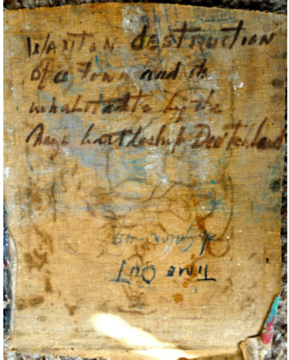 WANTON destruction
of a Town and its
inhabitants by the
Nazi battleship Deutchland
TIME OUT